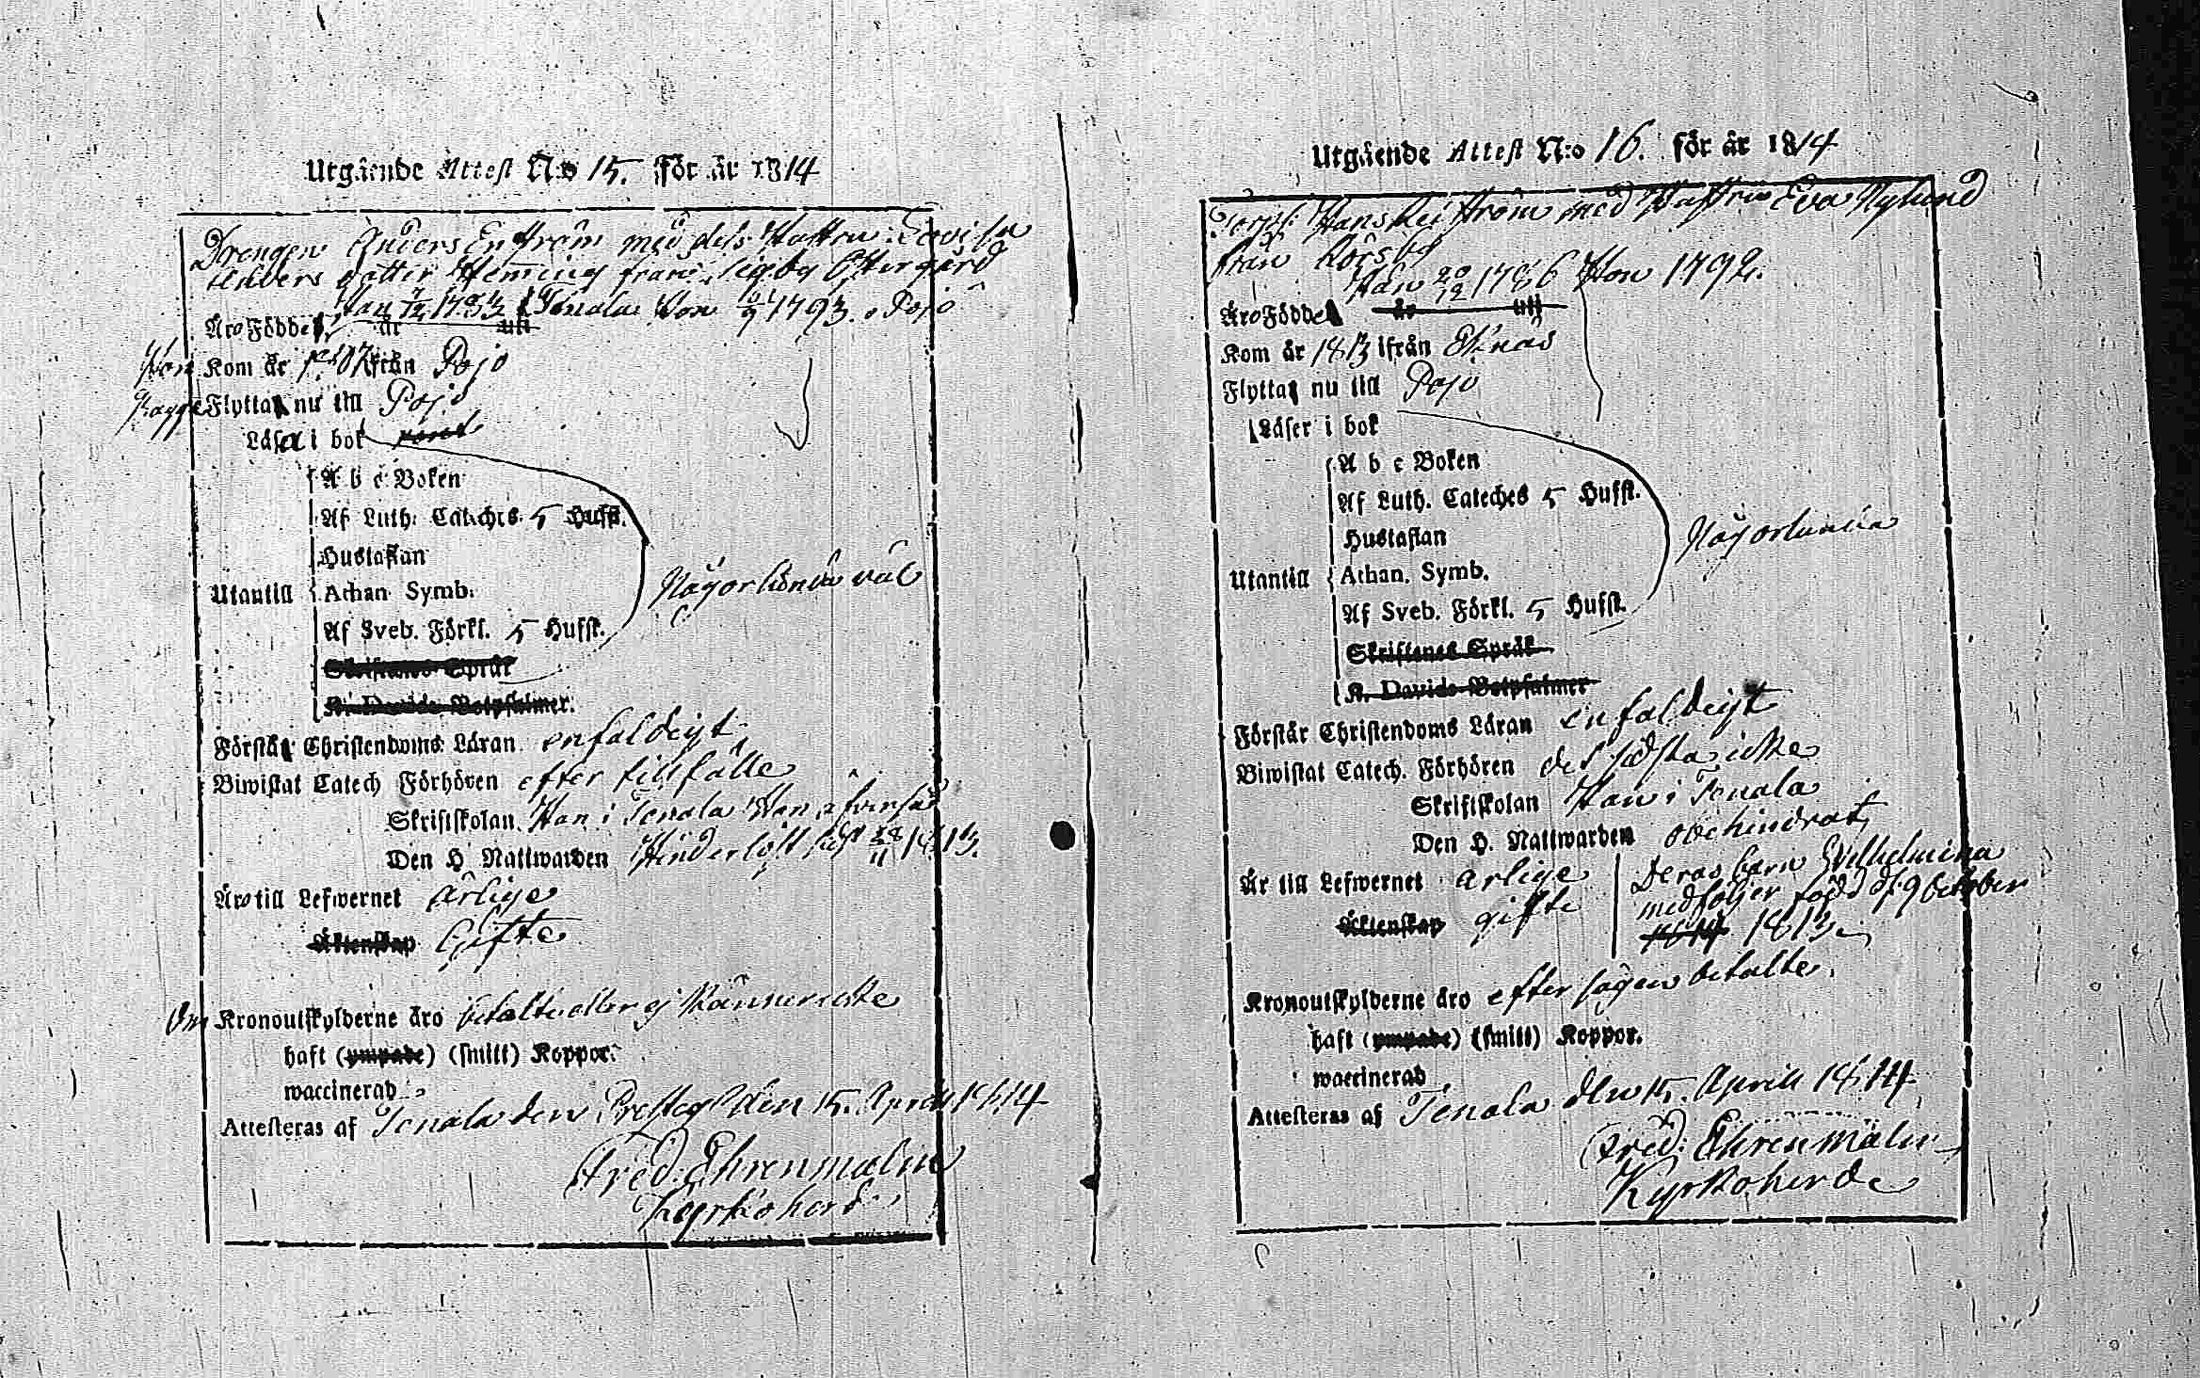 Utgående Attest N:o 15. för år 1814
Drengen Anders Enström med dess Hustru Lovisa
Anders dotter Heming från Sigby Östergård
Han 1783 i Tenala Hon 1793 i Pojo
Äro Födde år uti
Hon Kom år ifrån Pojo
Bägge Flytta nu till Pojo
Läsa i bok
A b c Boken
Af Luth. Cateches. 5 Hufst.
Hustaflan
Utantill Athan Symb.
Af Sveb. Förkl. 5 Hufst.
Skriftenes Språk
K. Davids Botpsalmer.
Någorlunda väl
Förstå Christendoms Läran enfaldigt
Biwistat Catech Förhören efter tillfälle
Skriftskolan Han i Tenala Hon
Den H Nattwarden 1813.
Äro till Lefwernet ärlige
Äktenskap Gifte
Om Kronoutskylderne äro betalte eller ej känner icke
haft (ympade) (smitt) Koppor.
waccinerad
Attesteras af Tenala den 15. April 1814
Fred: Ehrenmalm
Kyrkoherde
Utgående Attest N:o 16. för år 1814
Torp. Hans med Hustru Eva Nylund
från
Han 20/12 1786 Hon 1792.
Äro Födde år uti
Kom år 1813 ifrån Ekenäs
Flytta nu till Pojo
Läser i bok
A b c Boken
Af Luth. Cateches 5 Hufst.
Hustaflan
Utantill Athan. Symb.
Af Sveb. Förkl. 5 Hufst.
Skriftenes Språk
K. Davids Botpsalmer
Någorlunda
Förstår Christendoms Läran enfaldigt
Biwistat Catech. Förhören det sidsta icke
Skriftskolan Han i Tenala
Den H. Nattwarden obehindrat
Är till Lefwernet ärlige
Äktenskap gifte
Deras barn Wilhelmina
medföljer född d. 9 October
1814 1813.
Kronoutskylderne äro efter sägen betalte.
haft (ympade) (smitt) Koppor.
waccinerad
Attesteras af Tenala den 15. April 1814
Fred: Ehrenmalm
Kyrkoherde